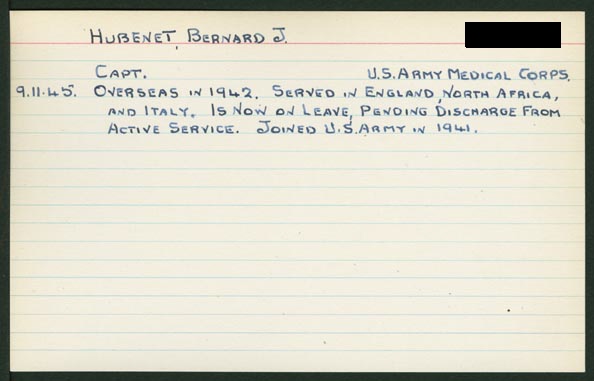 HUBENET, BERNARD J.
CAPT. U.S. ARMY MEDICAL CORPS.
9.11.45. OVERSEAS IN 1942. SERVED IN ENGLAND, NORTH AFRICA,
AND ITALY. IS NOW ON LEAVE, PENDING DISCHARGE FROM
ACTIVE SERVICE. JOINED U.S. ARMY IN 1941.